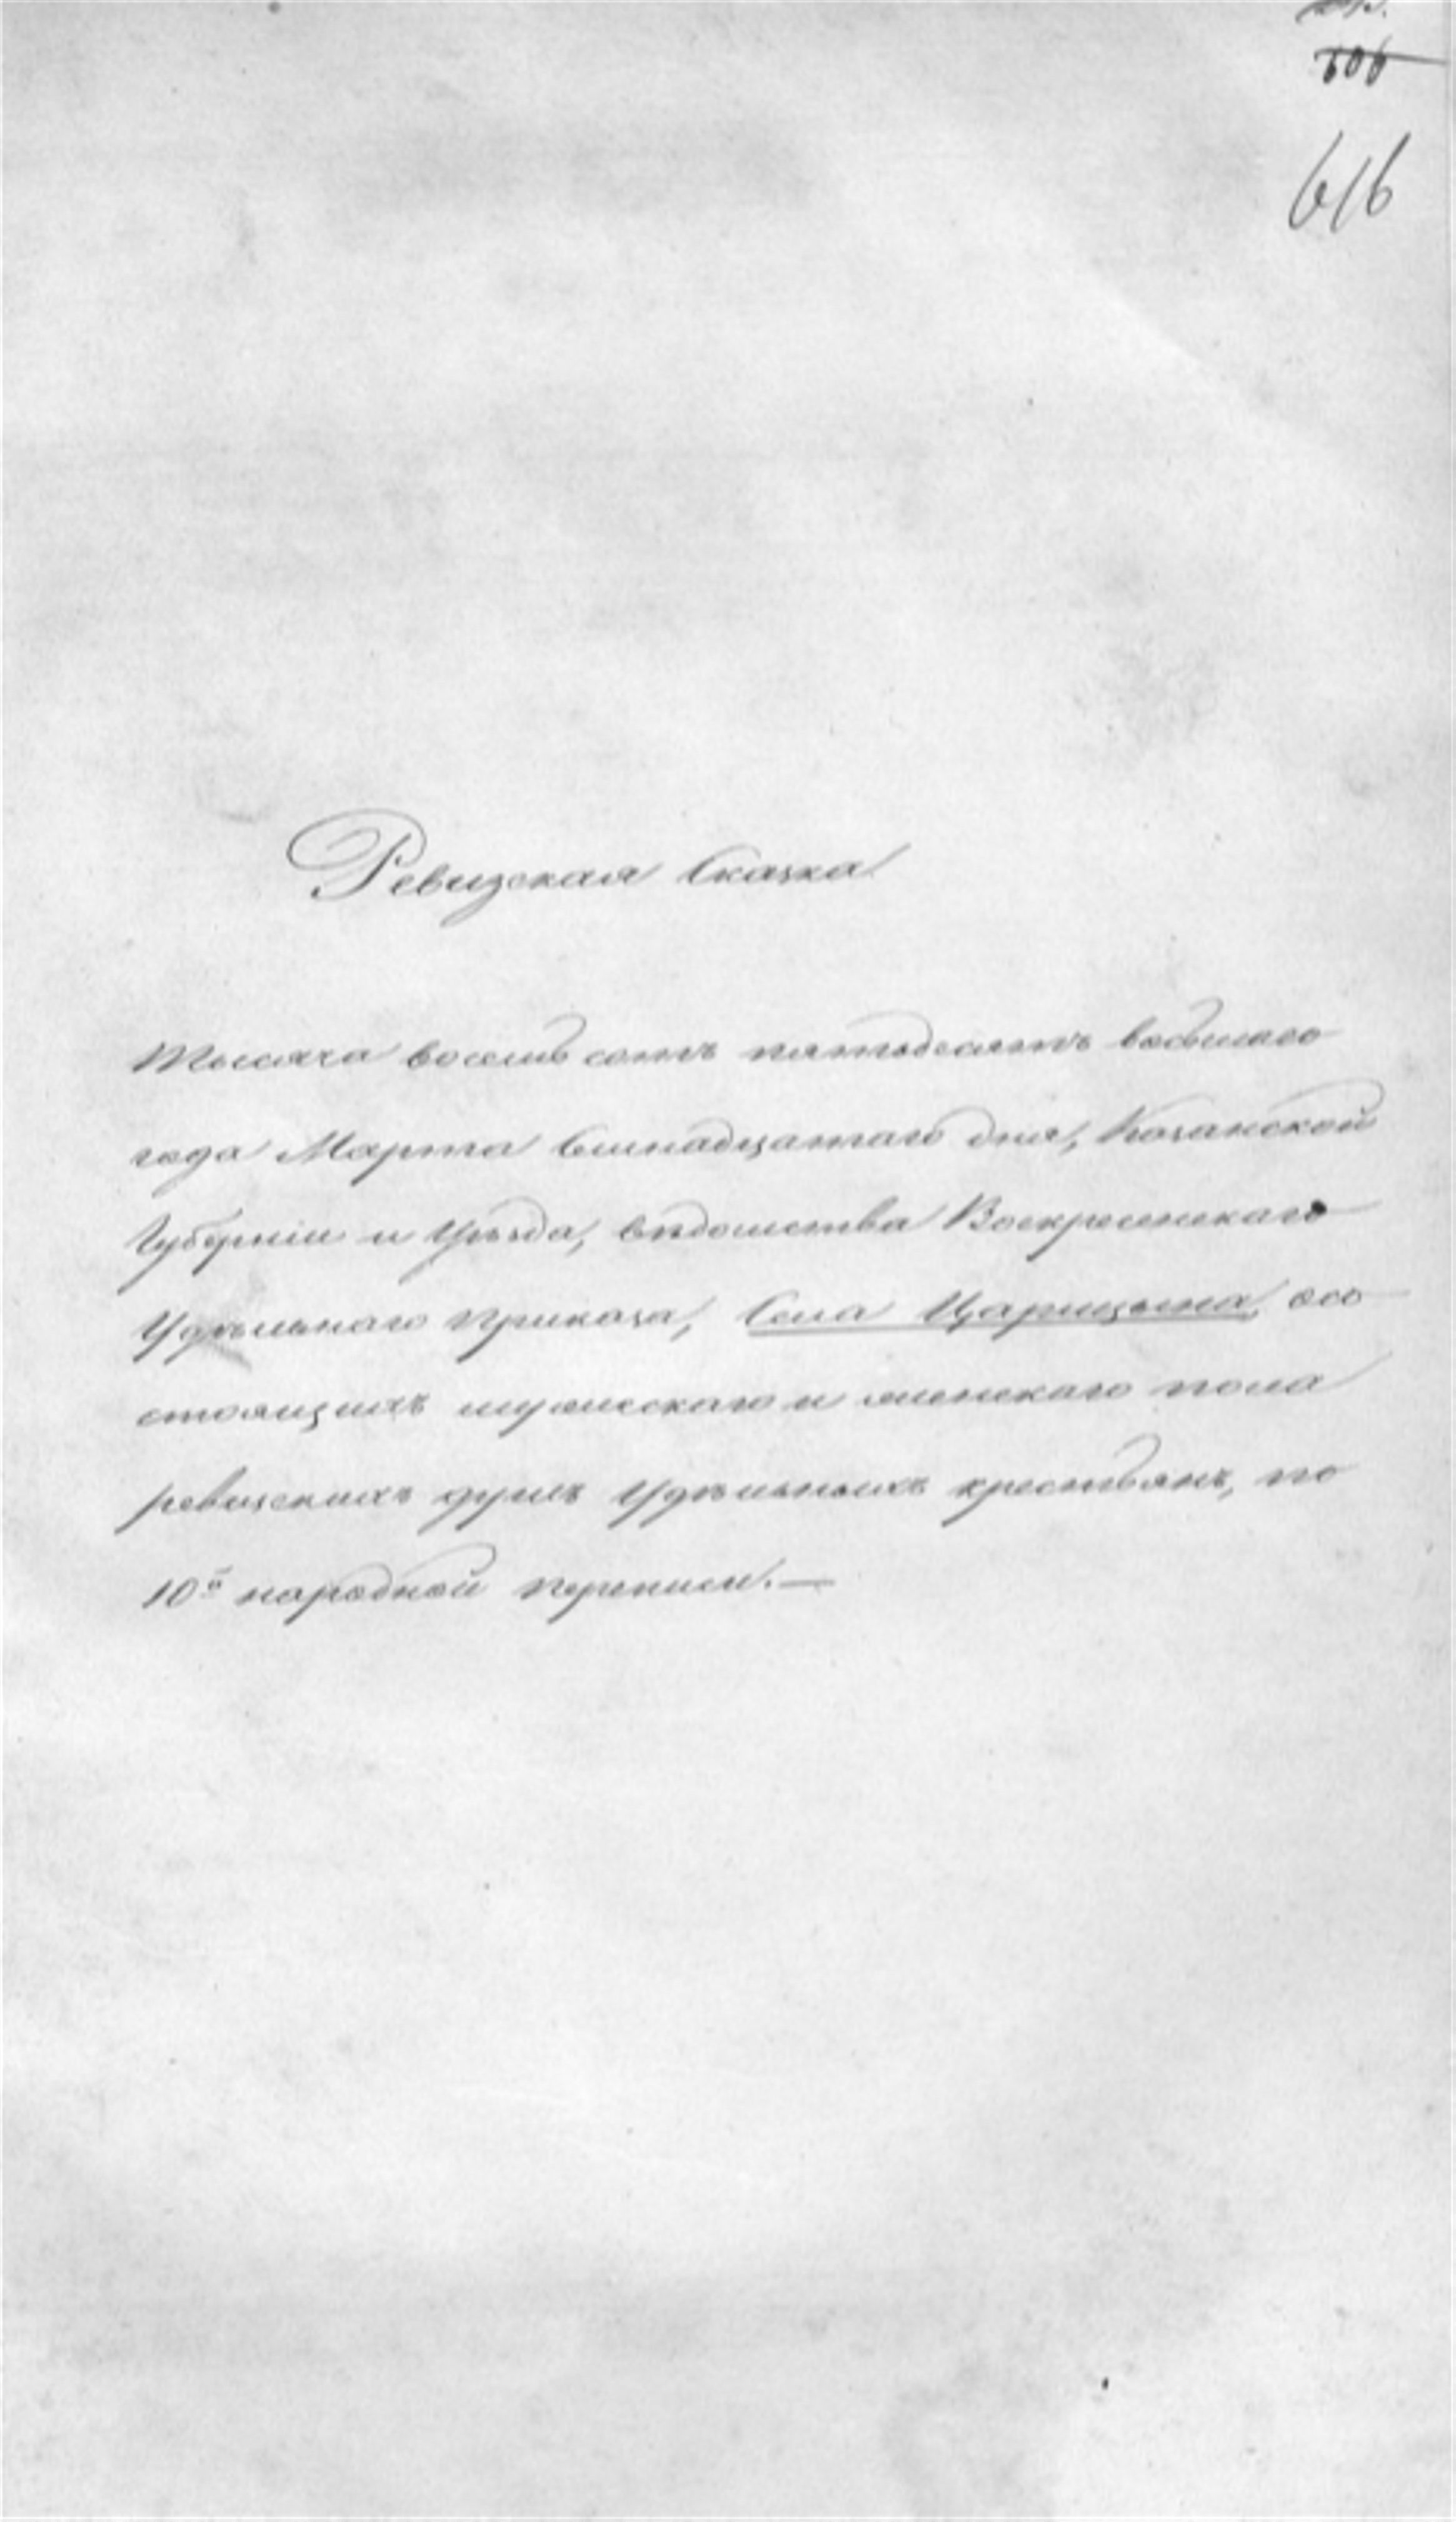 606
616
Ревизская Сказка
Тысяча восемь сотъ пятьдесятъ восьмаго
года Марта Семнадцатаго дня, Казанской
Губерніи и Уѣзда, вѣдомства Воскресенскаго
Удѣльнаго Приказа, Села Царицына, о со
стоящихъ мужескаго и женскаго пола
ревизскихъ душъ Удѣльныхъ крестьянъ, по
10й народной переписи.—